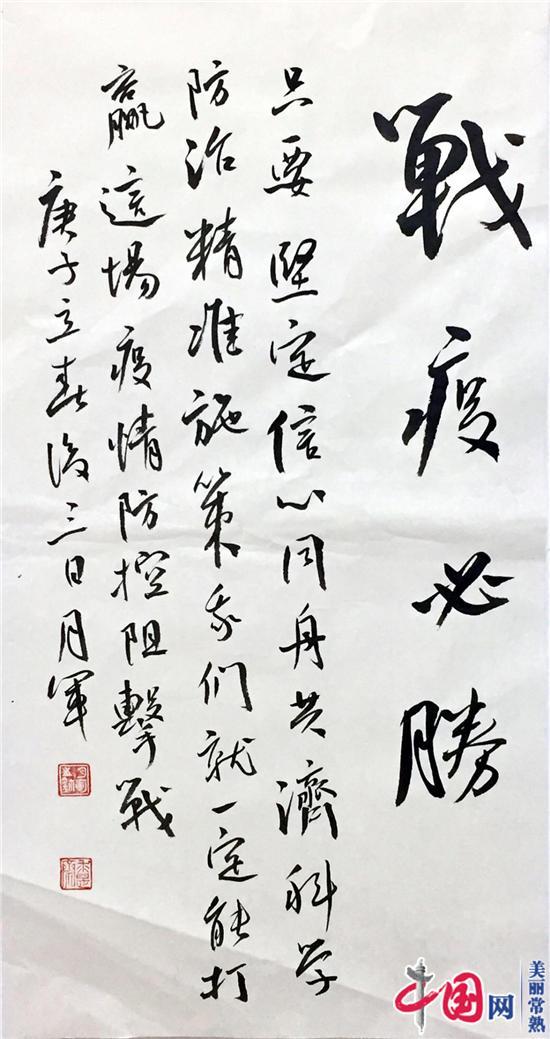 戰疫必勝
只要堅定信心同舟共濟科学
防治精准施策我们就一定能打
贏這場疫情防控阻擊戰
庚子立春後三日月軍
中国网
美丽常熟